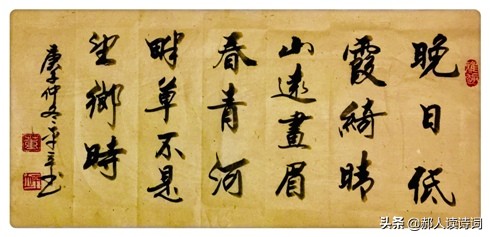 晚日低
霞綺晴
山遠畫眉
春青河
畔草不是
望鄉時
庚子仲冬
头条 @郝人读诗词